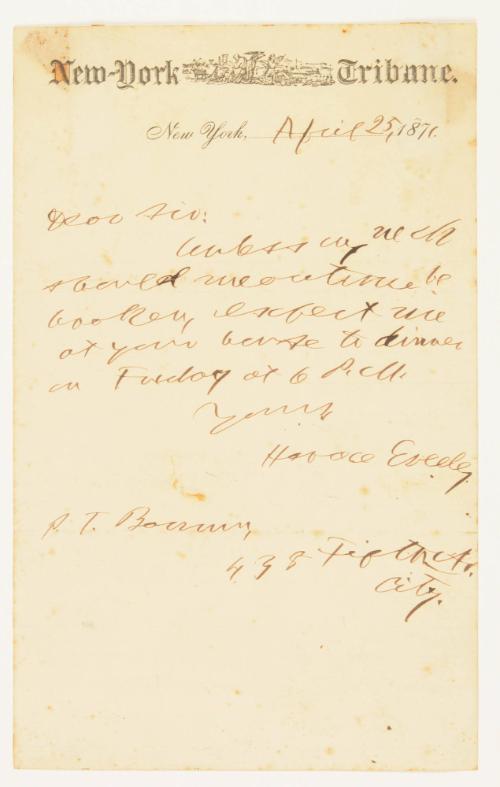 New-York Tribune.
New York, April 25, 1871.
Dear Sir:
Unless my neck
should meantime be
broken, expect me
at your house to dinner
on Friday at 6 P.M.
Yours,
Horace Greeley.
P. T. Barnum,
438 Fifth Av.
City.